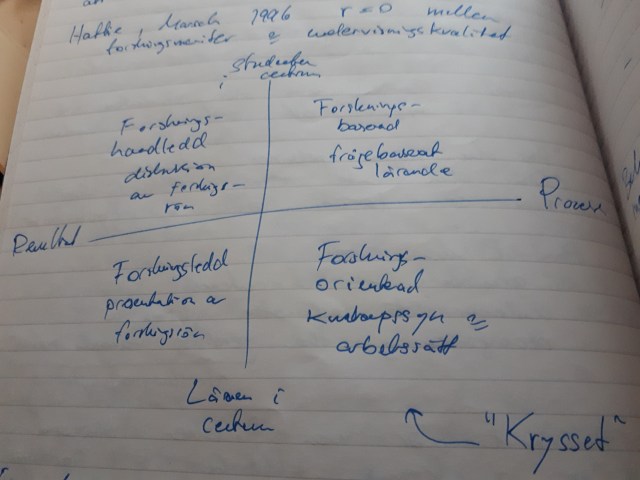 Hattie, Marsch 1996 r = 0 mellan
forskningsmeriter & undervisningskvalitet
Studenten
i centrum
Forsknings-
handledd
diskussion
av forsknings-
rön
Forsknings-
baserad
frågebaserat
lärande
Resultat
Process
Forskningsledd
presentation av
forskningsrön
Forsknings-
orienterad
kunskapssyn &
arbetssätt
Läraren i
centrum
"Krysset"